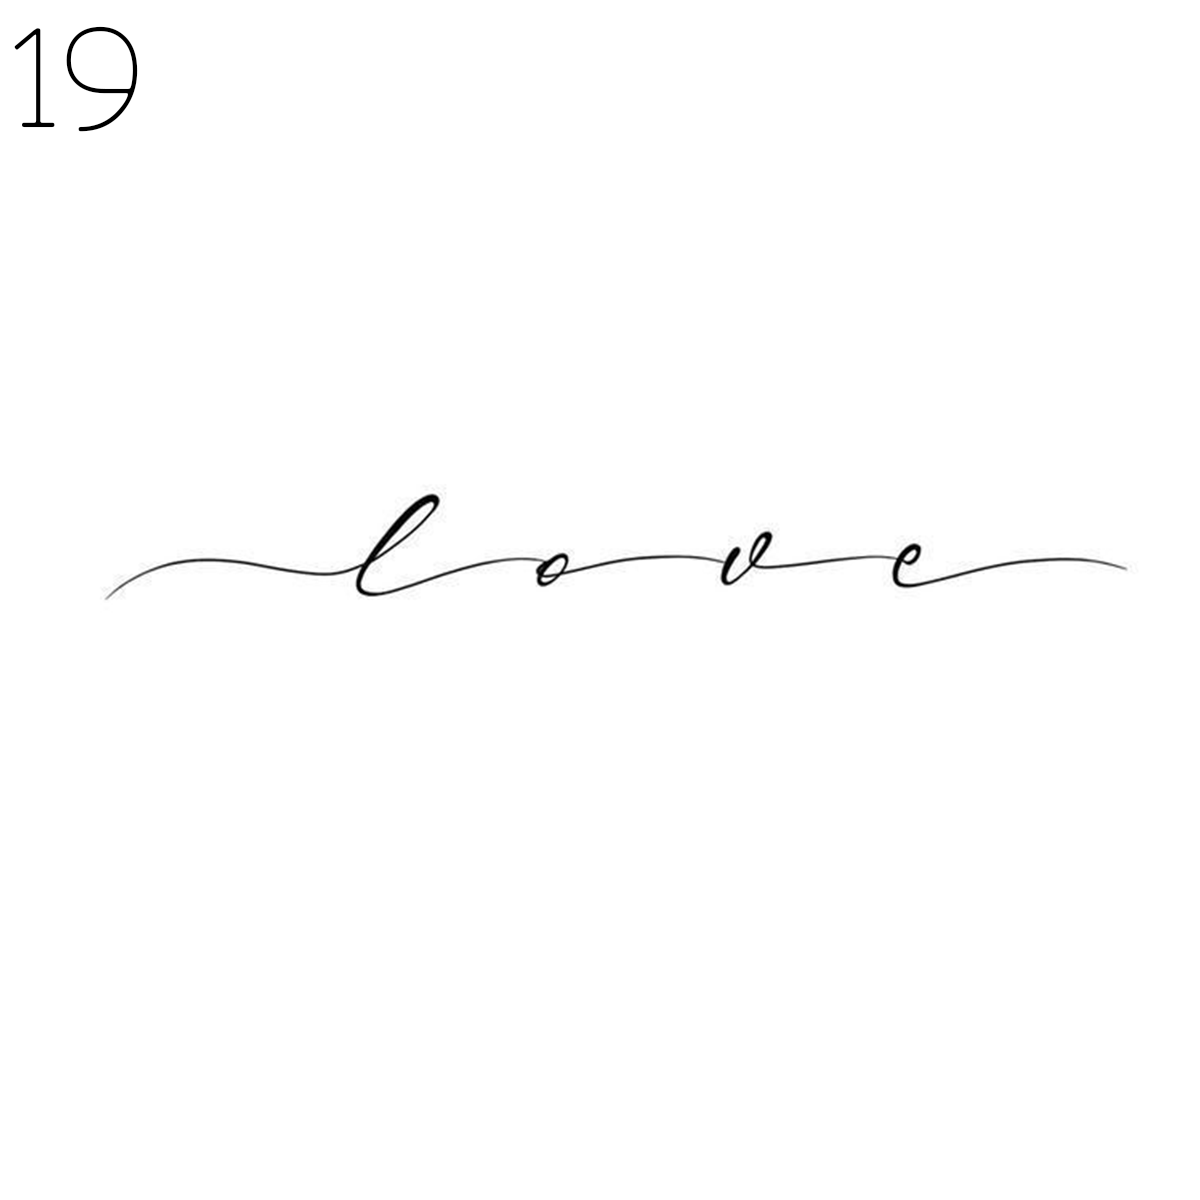 19
love